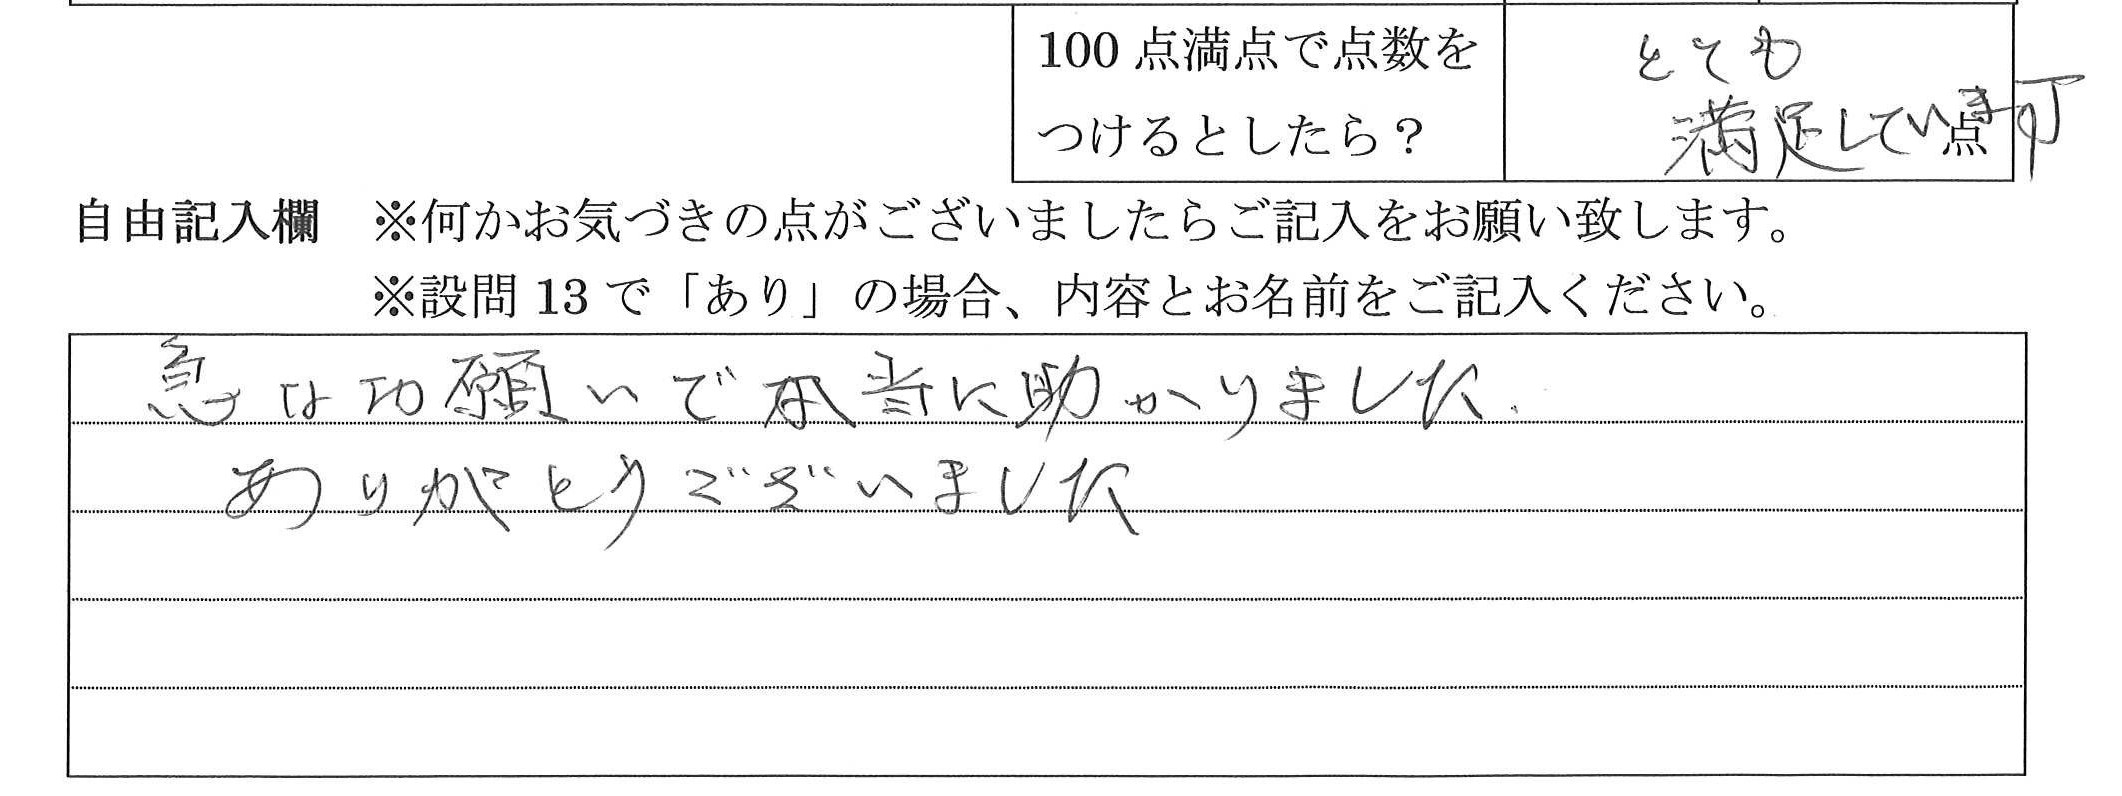 100点満点で点数を
つけるとしたら？
とても
満足しています
点
自由記入欄　※何かお気づきの点がございましたらご記入をお願い致します。
※設問13で「あり」の場合、内容とお名前をご記入ください。
急なお願いで本当に助かりました.
ありがとうございました